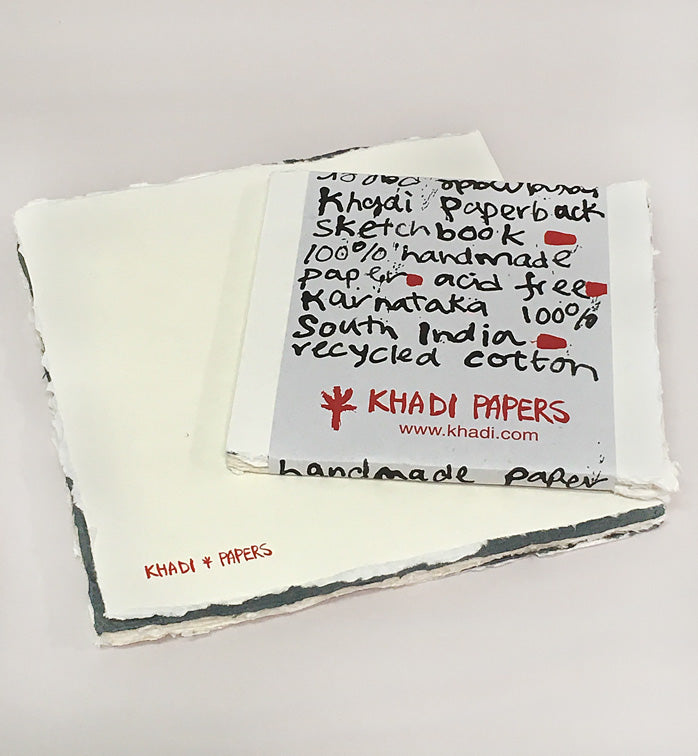 Khadi Paperback
sketchbook
100% handmade
paper acid free
Karnataka 100%
South India
recycled cotton
KHADI PAPERS
www.khadi.com
handmade paper
KHADI * PAPERS